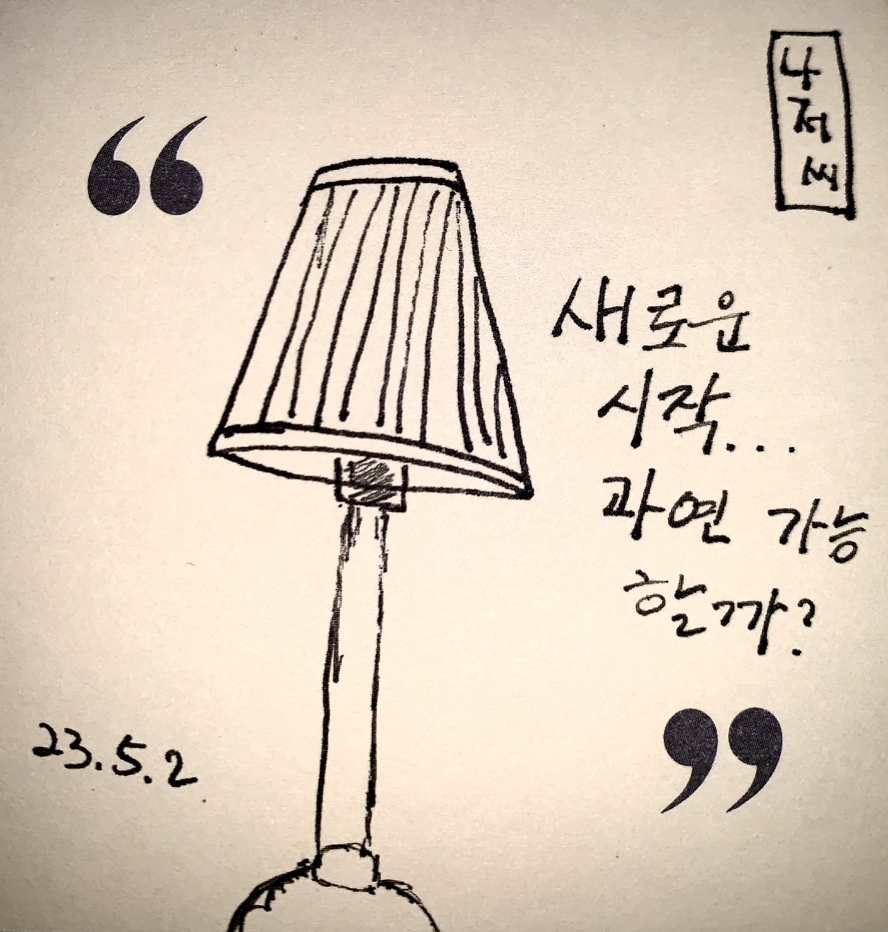 나저씨
“
새로운
시작...
과연 가능
할까?
”
23.5.2